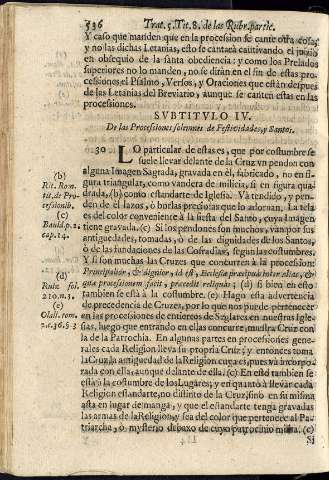 536 Trat. 5. Tit. 8. de las Rubr. partic.
Y caso que manden que en la procession se cante otra cosa,
y no las dichas Letanias, esto se cantarà cautivando el juizio
en obsequio de la santa obediencia: y como los Prelados
superiores no lo manden, no se diràn en el fin de estas pro-
cessiones el Psalmo, y Versos, y Oraciones que estàn despues
de las Letanias del Breviario, aunque se canten estas en las
processiones.
SUBTITULO IV.
De las Processiones solemnes de Festividades, y Santos.
30 LO particular de estas es, que por costumbre se
suele llevar delante de la Cruz vn pendon con
alguna Imagen Sagrada, gravada en èl, fabricado, no en fi-
gura triangular, como vandera de milicia, si en figura qua-
drada, (b) como estandarte de Iglesia. Và tendido, y pen-
den de èl lazos, ò borlas preciosas que lo adornan. La tela
es del color conveniente à la fiesta del Santo, cuya Imagen
tiene gravada. (c) Si los pendones son muchos, van por sus
antiguedades, tomadas, ò de las dignidades de los Santos,
ò de las fundaciones de las Cofradias, segun las costumbres.
Y si son muchas las Cruzes que concurren à la procession:
Principalior, & dignior, id est, Ecclesiæ præcipuæ inter alias, &
quæ processionem facit, præcedit reliquas; (d) si bien en esto
tambien se està à la costumbre. (e) Hago esta advertencia
de precedencia de Cruzes, por lo que nos puede pertenecer
en las processiones de entierros de Seglares en nuestras Igle-
sias, luego que entrando en ellas concurre, nuestra Cruz con
la de la Parrochia. En algunas partes en processiones genera-
les cada Religion lleva su propria Cruz; y entonces toma
la Cruz la antiguedad de la Religion cuya es, pues và incorpo-
rada con ella, aunque delante de ella. (e) En esto tambien se
està à la costumbre de los Lugares, y en quanto à llevar cada
Religion estandarte, no distinto de la Cruz, sino en su misma
asta en lugar de manga, y que el estandarte tenga gravadas
las armas de la Religion, y sea del color que pertenece al Pa-
triarcha, ò mysterio debaxo de cuyo patrocinio milita. (c)
Si
(b)
Rit. Rom-
tit. de Pro-
cessionib.
(c)
Bauld. p. 2.
cap. 14.
(d)
Ruiz fol.
210. n. 3.
(e)
Olall. tom.
2. c. 36. §. 3